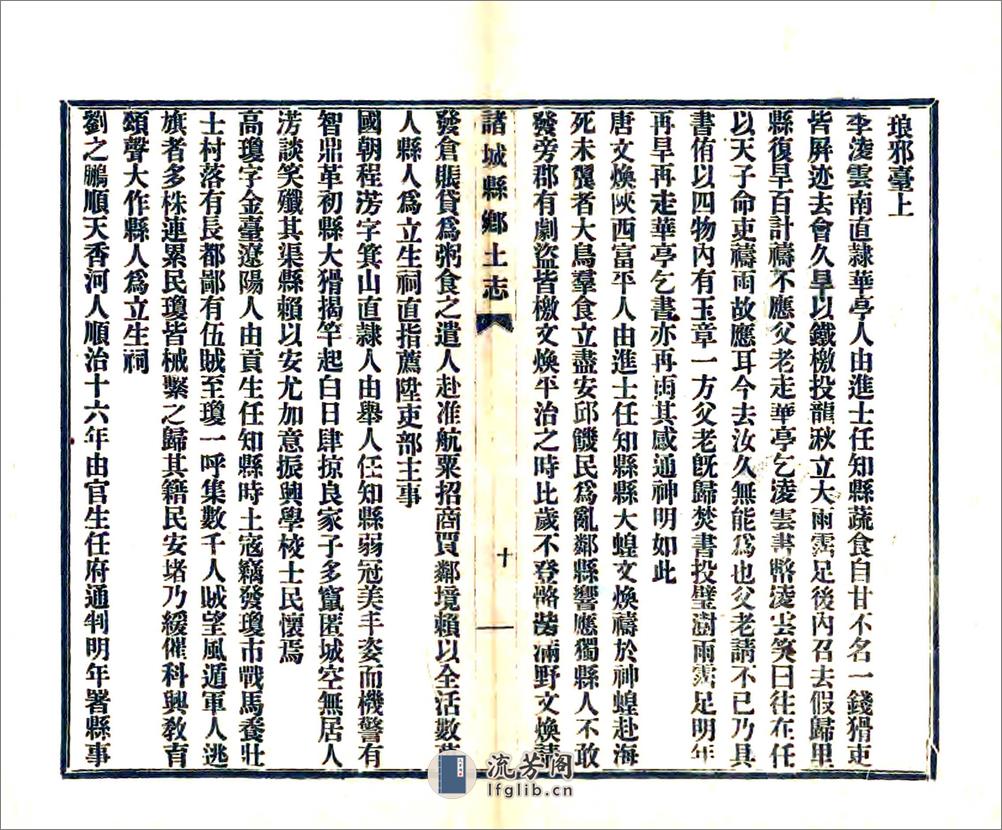 琅邪臺上
李淩雲南直隷華亭人由進士任知縣蔬食自甘不名一錢猾吏
皆屏迹去會久旱以鐵檄投龍湫立大雨霑足後內召去假歸里
縣復旱百計禱不應父老走華亭乞淩雲書幣淩雲笑曰往在任
以天子命吏禱雨故應耳今去汝久無能爲也父老請不已乃具
書侑以四物內有玉章一方父老旣歸焚書投璧澍雨霑足明年
再旱再走華亭乞書亦再雨其感通神明如此
唐文煥陝西富平人由進士任知縣縣大蝗文煥禱於神蝗赴海
死未翼者大鳥羣食立盡安邱饑民爲亂鄰縣響應獨縣人不敢
發旁郡有劇盜皆檄文煥平治之時比歲不登胔滿野文煥請
諸城縣鄉土志
十
發倉賑貸爲粥食之遣人赴淮航粟招商買鄰境賴以全活數萬
人縣人爲立生祠直指薦陞吏部主事
國朝程涝字箕山直隷人由舉人任知縣弱冠美丰姿而機警有
智鼎革初縣大猾揭竿起白日肆掠良家子多竄匿城空無居人
涝談笑殲其渠縣賴以安尤加意振興學校士民懷焉
高瓊字金臺遼陽人由貢生任知縣時土寇竊發瓊市戰馬養壯
士村落有長都鄙有伍賊至瓊一呼集數千人賊望風遁軍人逃
旗者多株連累民瓊皆械繫之歸其籍民安堵乃緩催科興敎育
頌聲大作縣人爲立生祠
劉之鵬順天香河人順治十六年由官生任府通判明年署縣事
流芳阁
lfglib.cn